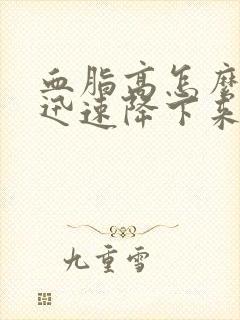 血脂高怎麽
迅速降下来
九重雪